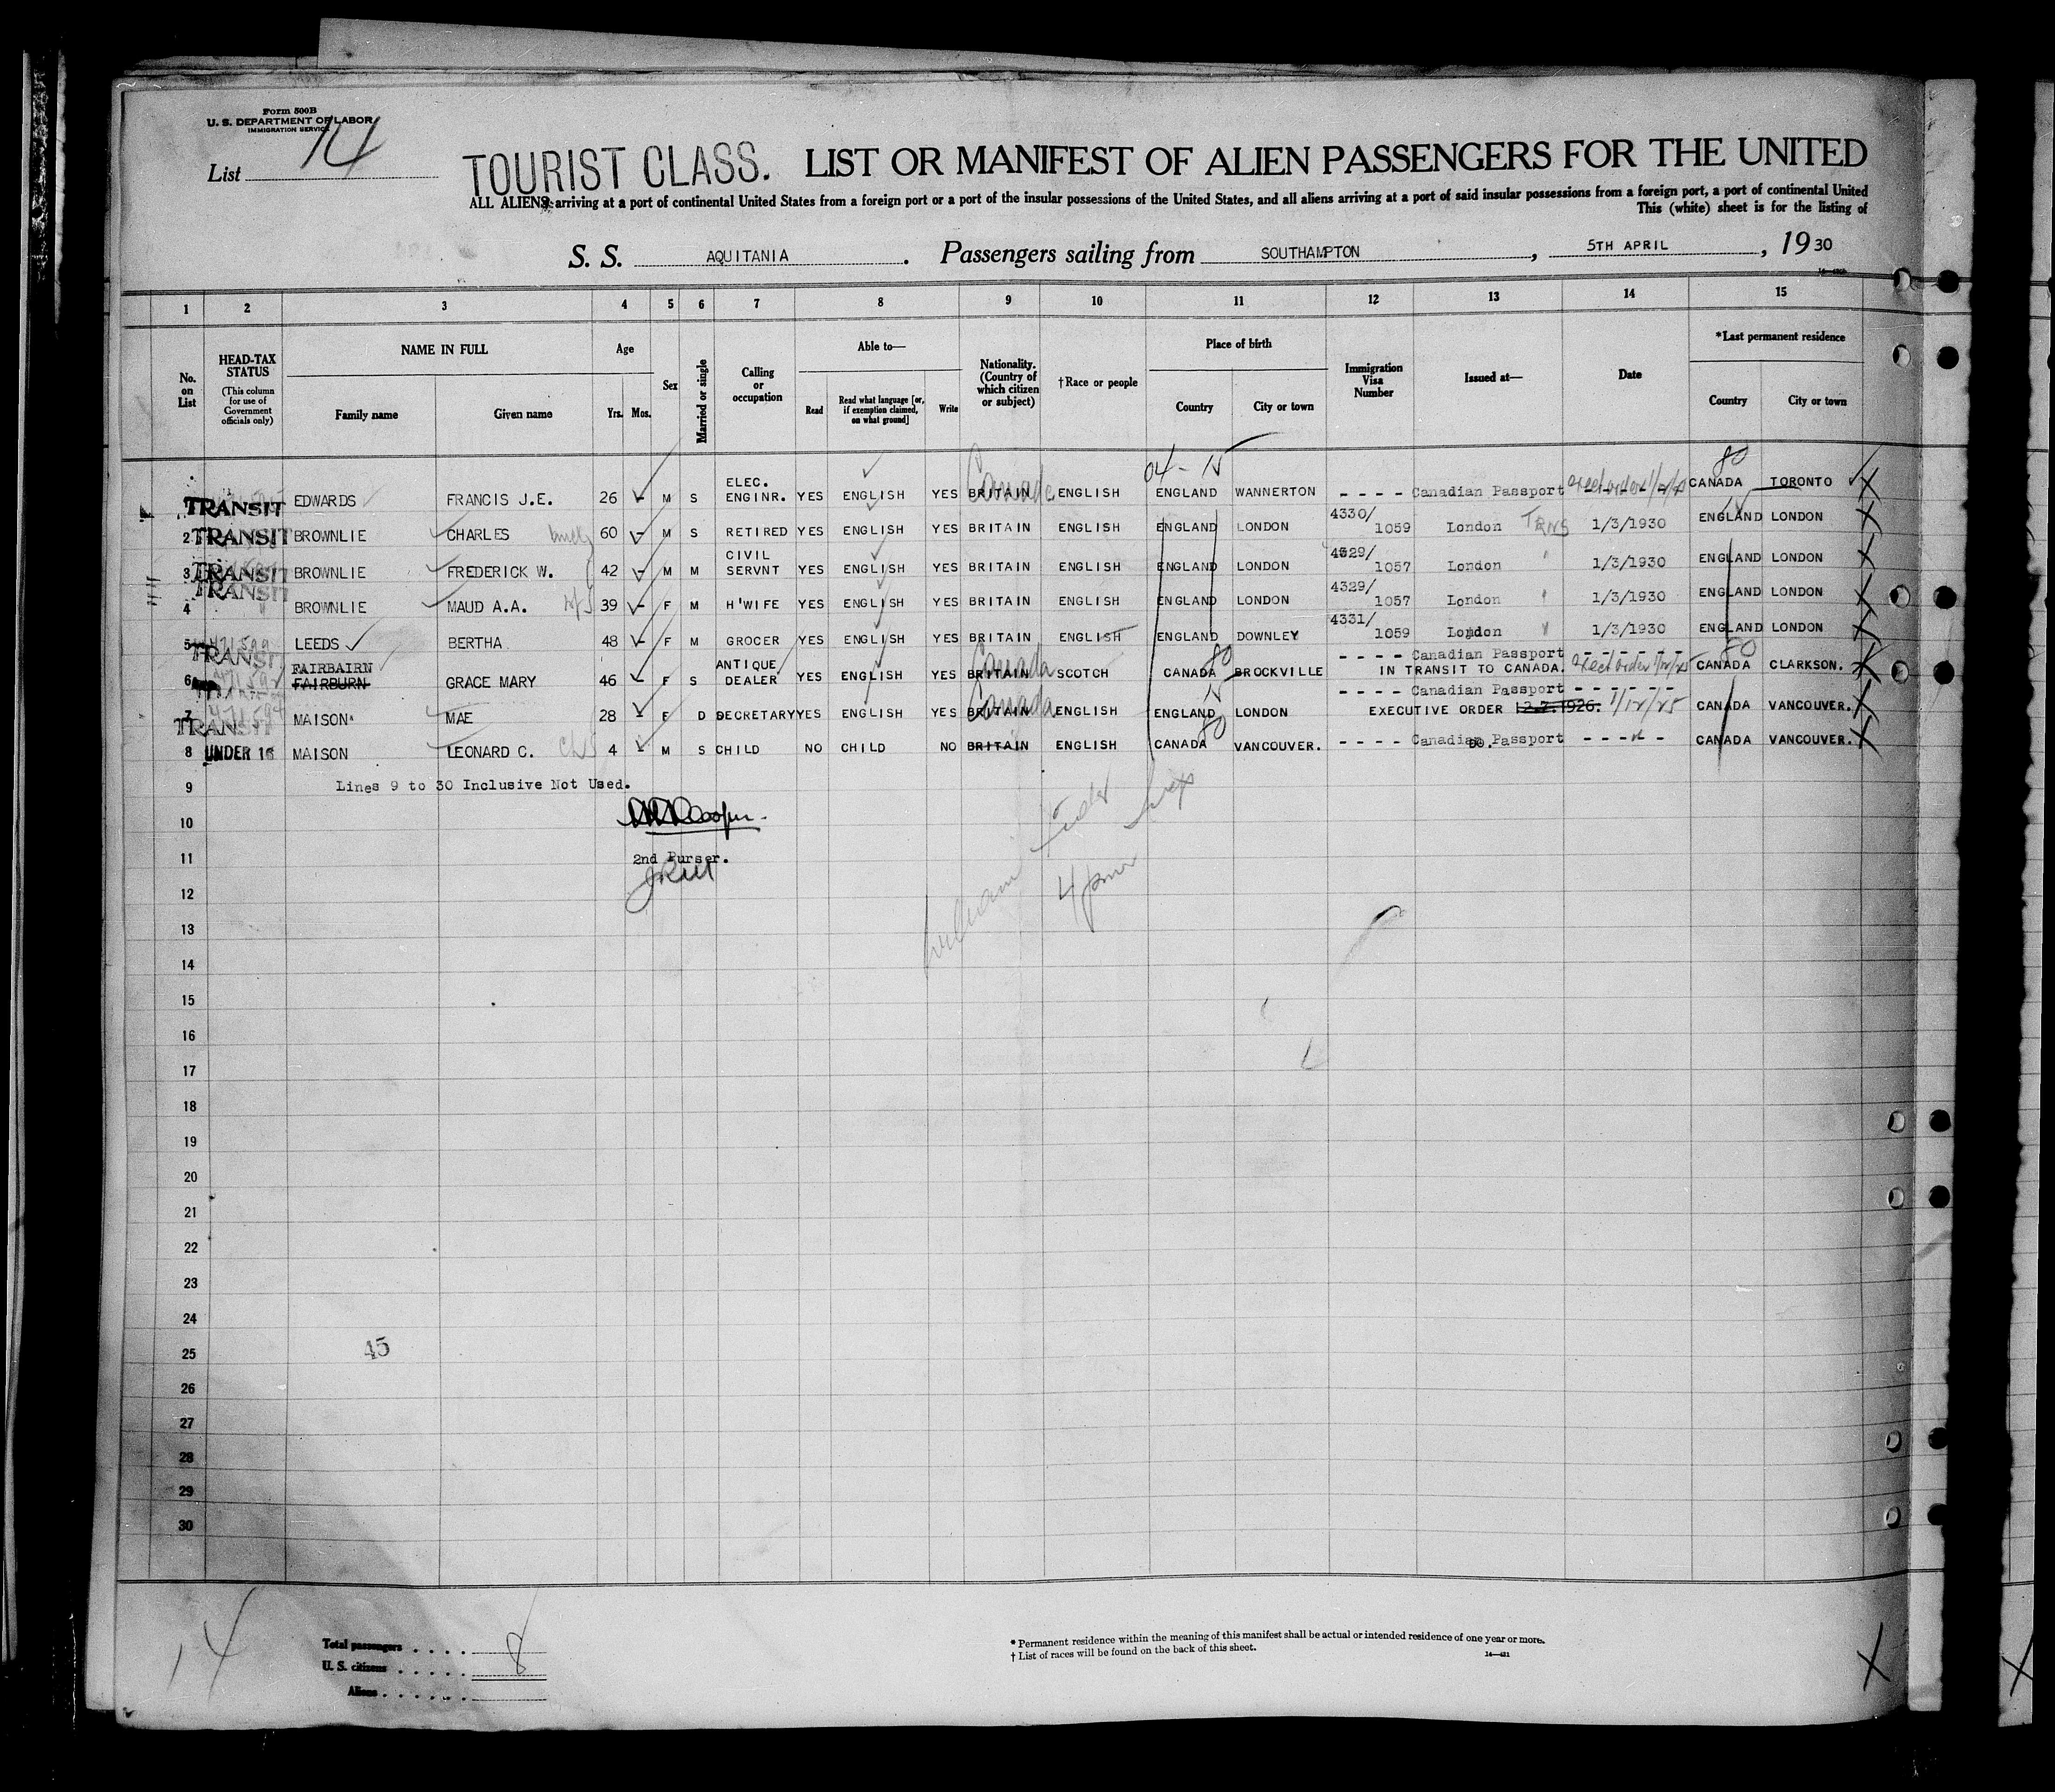 Form 500B
U. S. DEPARTMENT OF LABOR
IMMIGRATION SERVICE
List 14
TOURIST CLASS. LIST OR MANIFEST OF ALIEN PASSENGERS FOR THE UNITED
ALL ALIENS arriving at a port of continental United States from a foreign port or a port of the insular possessions of the United States, and all aliens arriving at a port of said insular possessions from a foreign port, a port of continental United
This (white) sheet is for the listing of
S. S. AQUITANIA. Passengers sailing from SOUTHAMPTON, 5TH APRIL, 1930
1 2 3 4 5 6 7 8 9 10 11 12 13 14 15
No. on List
HEAD-TAX STATUS (This column for use of Government officials only)
NAME IN FULL Family name Given name
Age Yrs. Mos.
Sex
Married or single
Calling or occupation
Able to— Read Read what language [or, if exemption claimed, on what ground] Write
Nationality. (Country of which citizen or subject)
†Race or people
Place of birth Country City or town
Immigration Visa Number
Issued at—
Date
*Last permanent residence Country City or town
04 - 15 80
TRANSIT EDWARDS FRANCIS J.E. 26 - M S ELEC. ENGINR. YES ENGLISH YES BRITAIN Canada ENGLISH ENGLAND WANNERTON - - - - Canadian Passport CANADA TORONTO
2 TRANSIT BROWNLIE CHARLES 60 - M S RETIRED YES ENGLISH YES BRITAIN ENGLISH ENGLAND LONDON 4330/1059 London TRNS 1/3/1930 ENGLAND LONDON
3 TRANSIT BROWNLIE FREDERICK W. 42 - M M CIVIL SERVNT YES ENGLISH YES BRITAIN ENGLISH ENGLAND LONDON 4329/1057 London " 1/3/1930 ENGLAND LONDON
4 TRANSIT BROWNLIE MAUD A.A. 39 - F M H'WIFE YES ENGLISH YES BRITAIN ENGLISH ENGLAND LONDON 4329/1057 London " 1/3/1930 ENGLAND LONDON
5 LEEDS BERTHA 48 - F M GROCER YES ENGLISH YES BRITAIN ENGLISH ENGLAND DOWNLEY 4331/1059 London " 1/3/1930 ENGLAND LONDON
6 TRANSIT FAIRBAIRN FAIRBURN GRACE MARY 46 - F S ANTIQUE DEALER YES ENGLISH YES BRITAIN Canada SCOTCH CANADA 80 BROCKVILLE - - - - Canadian Passport - - - - - - IN TRANSIT TO CANADA. CANADA 80 CLARKSON.
7 TRANSIT MAISON MAE 28 - F D SECRETARY YES ENGLISH YES BRITAIN Canada ENGLISH ENGLAND 15 LONDON - - - - Canadian Passport - - - - - - EXECUTIVE ORDER 2.7.1926. 1/12/25 CANADA VANCOUVER.
8 UNDER 16 MAISON LEONARD C. 4 - M S CHILD NO CHILD NO BRITAIN ENGLISH CANADA 80 VANCOUVER. - - - - Canadian Passport DO. - - - - CANADA VANCOUVER.
9 Lines 9 to 30 Inclusive Not Used.
10
11 2nd Purser.
12 4 pm
13
14
15
16
17
18
19
20
21
22
23
24
25 45
26
27
28
29
30
14
Total passengers . . . .
U. S. citizens . . . . . 8
Aliens . . . . . .
* Permanent residence within the meaning of this manifest shall be actual or intended residence of one year or more.
† List of races will be found on the back of this sheet.